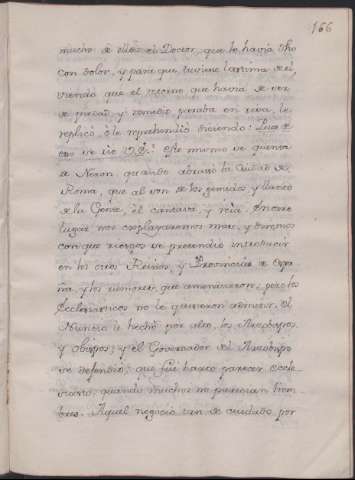 166
mucho de ello el Doctor, que lo havia dho
con dolor, y para que tuviese lastima de el,
viendo que el vecino que havia de ser
de piedad y remedio paraba en risa, le
replicó, ó le reprehendió diciendo:
eso se rie Esto mismo se quenta
de Neron, quando abrasó la Ciudad de
Roma, que al son de los gemidos y llantos
de la Gente, él cantava, y reia. En otro
lugar nos explayaremos mas, y diremos
con que riesgos se pretendió introducir
en los otros Reinos, y Provincias de Espa-
ña, y los rumores que amenazaron, pero los
Eclesiasticos no le quisieron admitir. El
Nuncio le hechó por alto, los Arzobispos,
y obispos; y el Governador del Arzobispo
se defendió; que fué harto parecer Ecle-
siastico, quando muchos no parecian hom-
bres. Aquel negocio tan de cuidado por